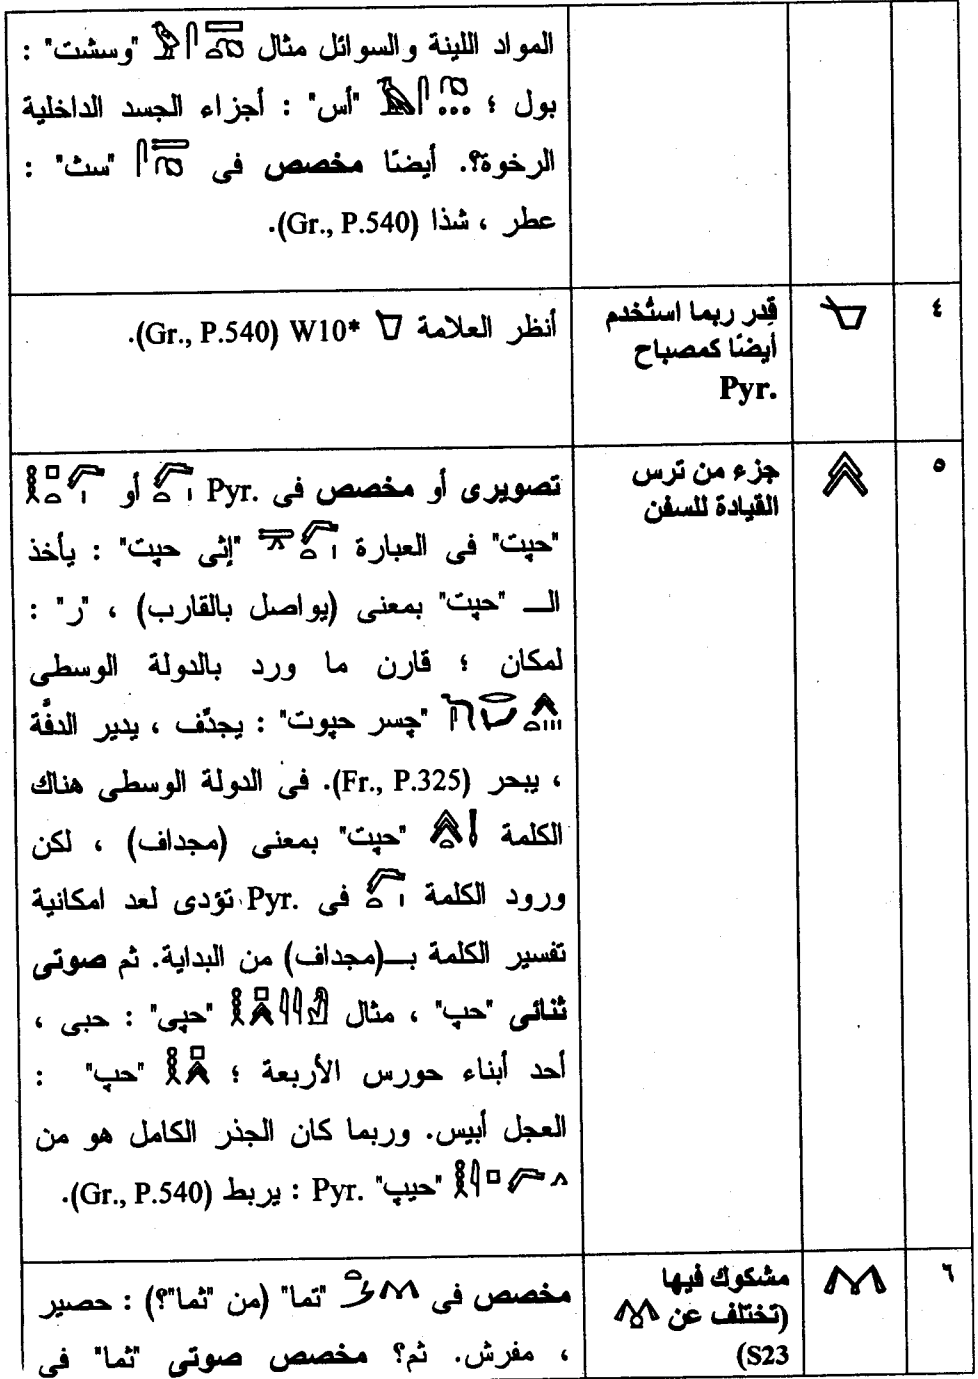 المواد اللينة والسوائل مثال "وسشت" :
بول ؛ "أس" : أجزاء الجسد الداخلية
الرخوة؟. أيضًا مخصص فى "سث" :
عطر ، شذا (Gr., P.540).
٤
قِدر ربما استُخدم
أيضًا كمصباح
Pyr.
أنظر العلامة W10* (Gr., P.540).
٥
جزء من ترس
القيادة للسفن
تصويرى أو مخصص فى Pyr. أو
"حپت" فى العبارة "إثى حپت" : يأخذ
الـ "حپت" بمعنى (يواصل بالقارب) ، "ر" :
لمكان ؛ قارن ما ورد بالدولة الوسطى
"چسر حپوت" : يجدِّف ، يدير الدفَّة
، يبحر (Fr., P.325). فى الدولة الوسطى هناك
الكلمة "حپت" بمعنى (مجداف) ، لكن
ورود الكلمة فى Pyr. تؤدى لعد امكانية
تفسير الكلمة بـ(مجداف) من البداية. ثم صوتى
ثنائى "حپ" ، مثال "حپى" : حبى ،
أحد أبناء حورس الأربعة ؛ "حپ" :
العجل أبيس. وربما كان الجذر الكامل هو من
"حيپ" Pyr. : يربط (Gr., P.540).
٦
مشكوك فيها
(تختلف عن
S23)
مخصص فى "تما" (من "ثما"؟) : حصير
، مفرش. ثم؟ مخصص صوتى "ثما" فى